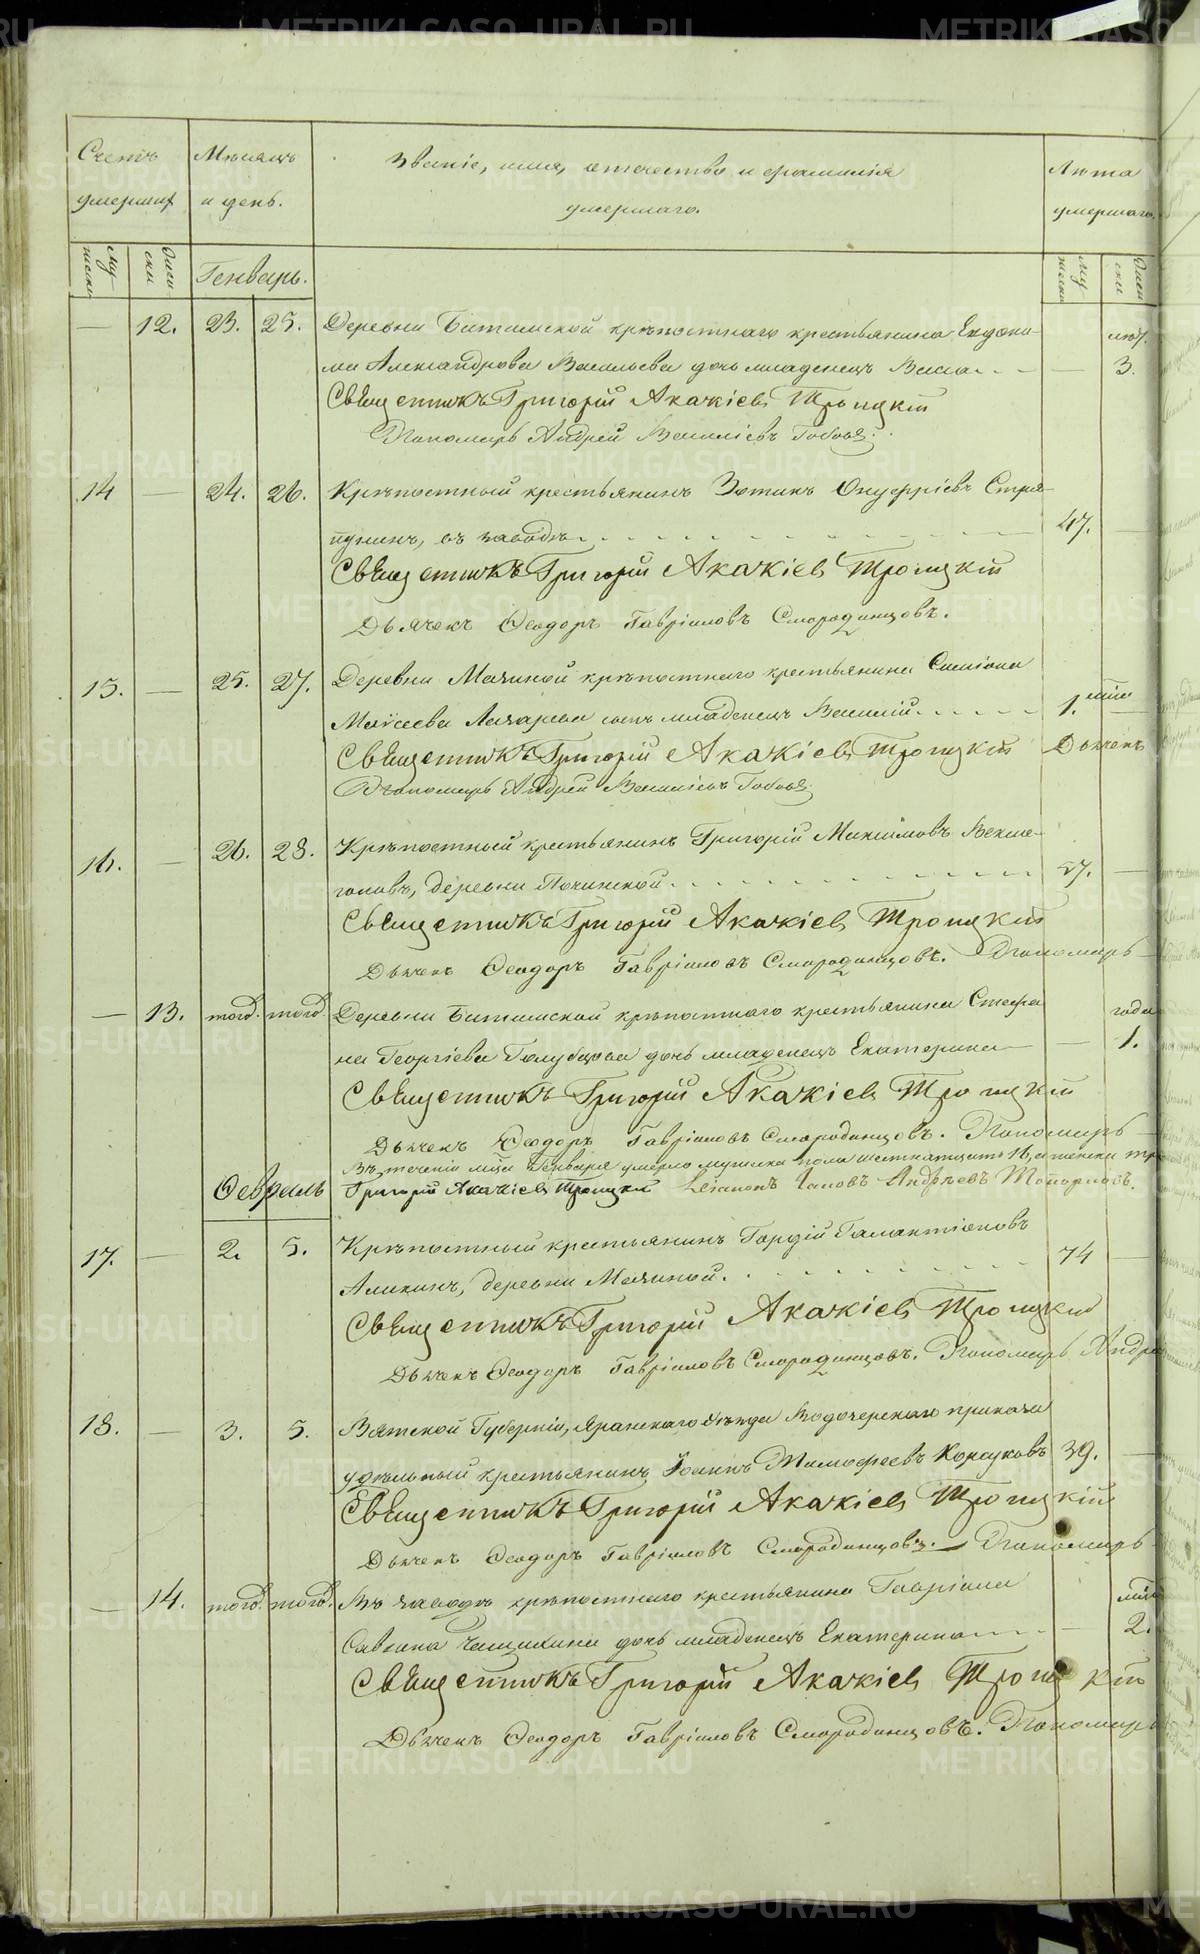 Счетъ умершихъ
Мѣсяцъ и день.
Званіе, имя, отечество и фамилія
умершаго.
Лѣта умершаго.
Генварь.
12. 23. 25. Деревни Битимской крѣпостнаго крестьянина Евдоки-
ма Александрова Васильева дочь младенецъ Васса 3.
Священникъ Григорій Акакіевъ Троицкій
Пономарь Андрей Василіевъ
14 24. 26. Крѣпостный крестьянинъ Зотикъ Онуфріевъ Стря-
пунинъ, въ заводѣ. 47.
Священникъ Григорій Акакіевъ Троицкій
Дьячекъ Ѳеодоръ Гавріиловъ Смородинцовъ.
15. 25. 27. Деревни Мачиной крѣпостнаго крестьянина Симеона
Моѵсеева сынъ младенецъ Василій. 1.
Священникъ Григорій Акакіевъ Троицкій Дьячекъ
Пономарь Андрей Василіевъ
16. 26. 28. Крѣпостный крестьянинъ Григорій Максимовъ Векше-
головъ, деревни Починской. 57.
Священникъ Григорій Акакіевъ Троицкій
Дьячекъ Ѳеодоръ Гавріиловъ Смородинцовъ. Пономарь
13. тогд. тогд. Деревни Битимской крѣпостнаго крестьянина Стефа
на Георгіева Голубцова дочь младенецъ Екатерина года 1.
Священникъ Григорій Акакіевъ Троицкій
Дьячекъ Ѳеодоръ Гавріиловъ Смородинцовъ. Пономарь
Въ теченіи мца Генваря умерло мужеска пола шестнатцать 16, а женска
Февраль Григорій Акакіевъ Троицкій Діаконъ Андреевъ Топорковъ.
17. 2. 5. Крѣпостный крестьянинъ Гордій Галактіоновъ
Аликинъ, деревни Мачиной. 74
Священникъ Григорій Акакіевъ Троицкій
Дьячекъ Ѳеодоръ Гавріиловъ Смородинцовъ. Пономарь
18. 3. 5. Вятской Губерніи, Яранскаго уѣзда приказа
удѣльный крестьянинъ Іоаннъ Тимофеевъ 39.
Священникъ Григорій Акакіевъ Троицкій
Дьячекъ Ѳеодоръ Гавріиловъ Смородинцовъ. Пономарь
14. тогд. тогд. Въ заводѣ крѣпостнаго крестьянина Гавріила
Саввина дочь младенецъ Екатерина 2.
Священникъ Григорій Акакіевъ Троицкій
Дьячекъ Ѳеодоръ Гавріиловъ Смородинцовъ. Пономарь
METRIKI.GASO-URAL.RU